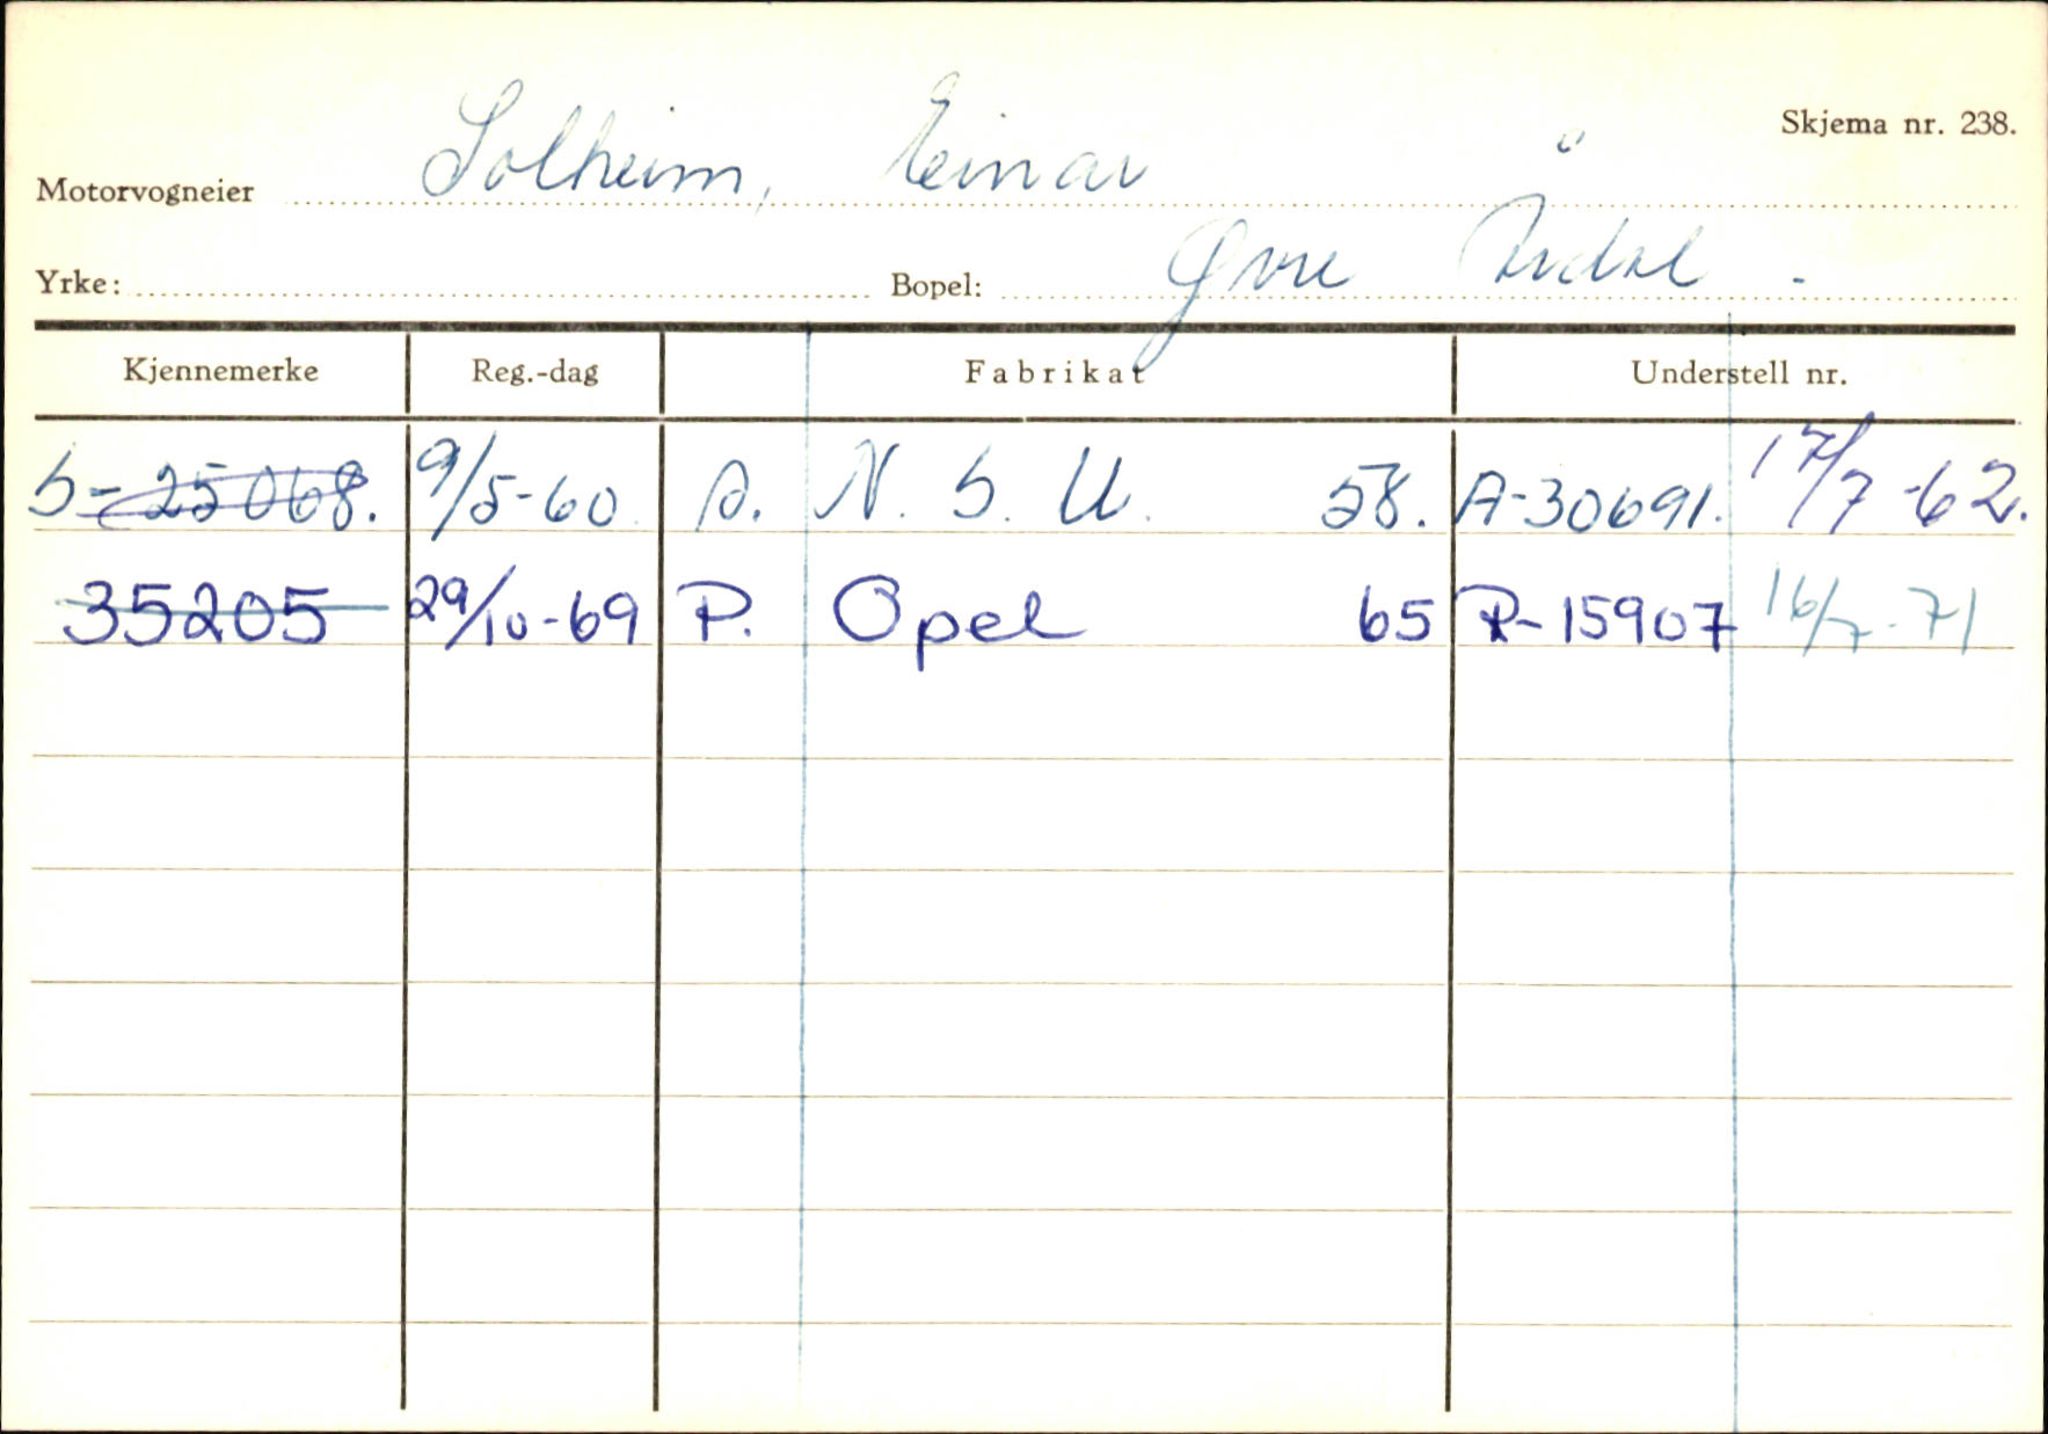 Skjema nr. 238.
Motorvogneier Solheim, Einar
Yrke: Bopel: Øvre Årdal.
Kjennemerke Reg.-dag Fabrikat Understell nr.
S-25068. 9/5-60 S. N.S.U. 58. A-30691. 17/7-62.
35205 29/10-69 P. Opel 65 R-15907 16/7-71